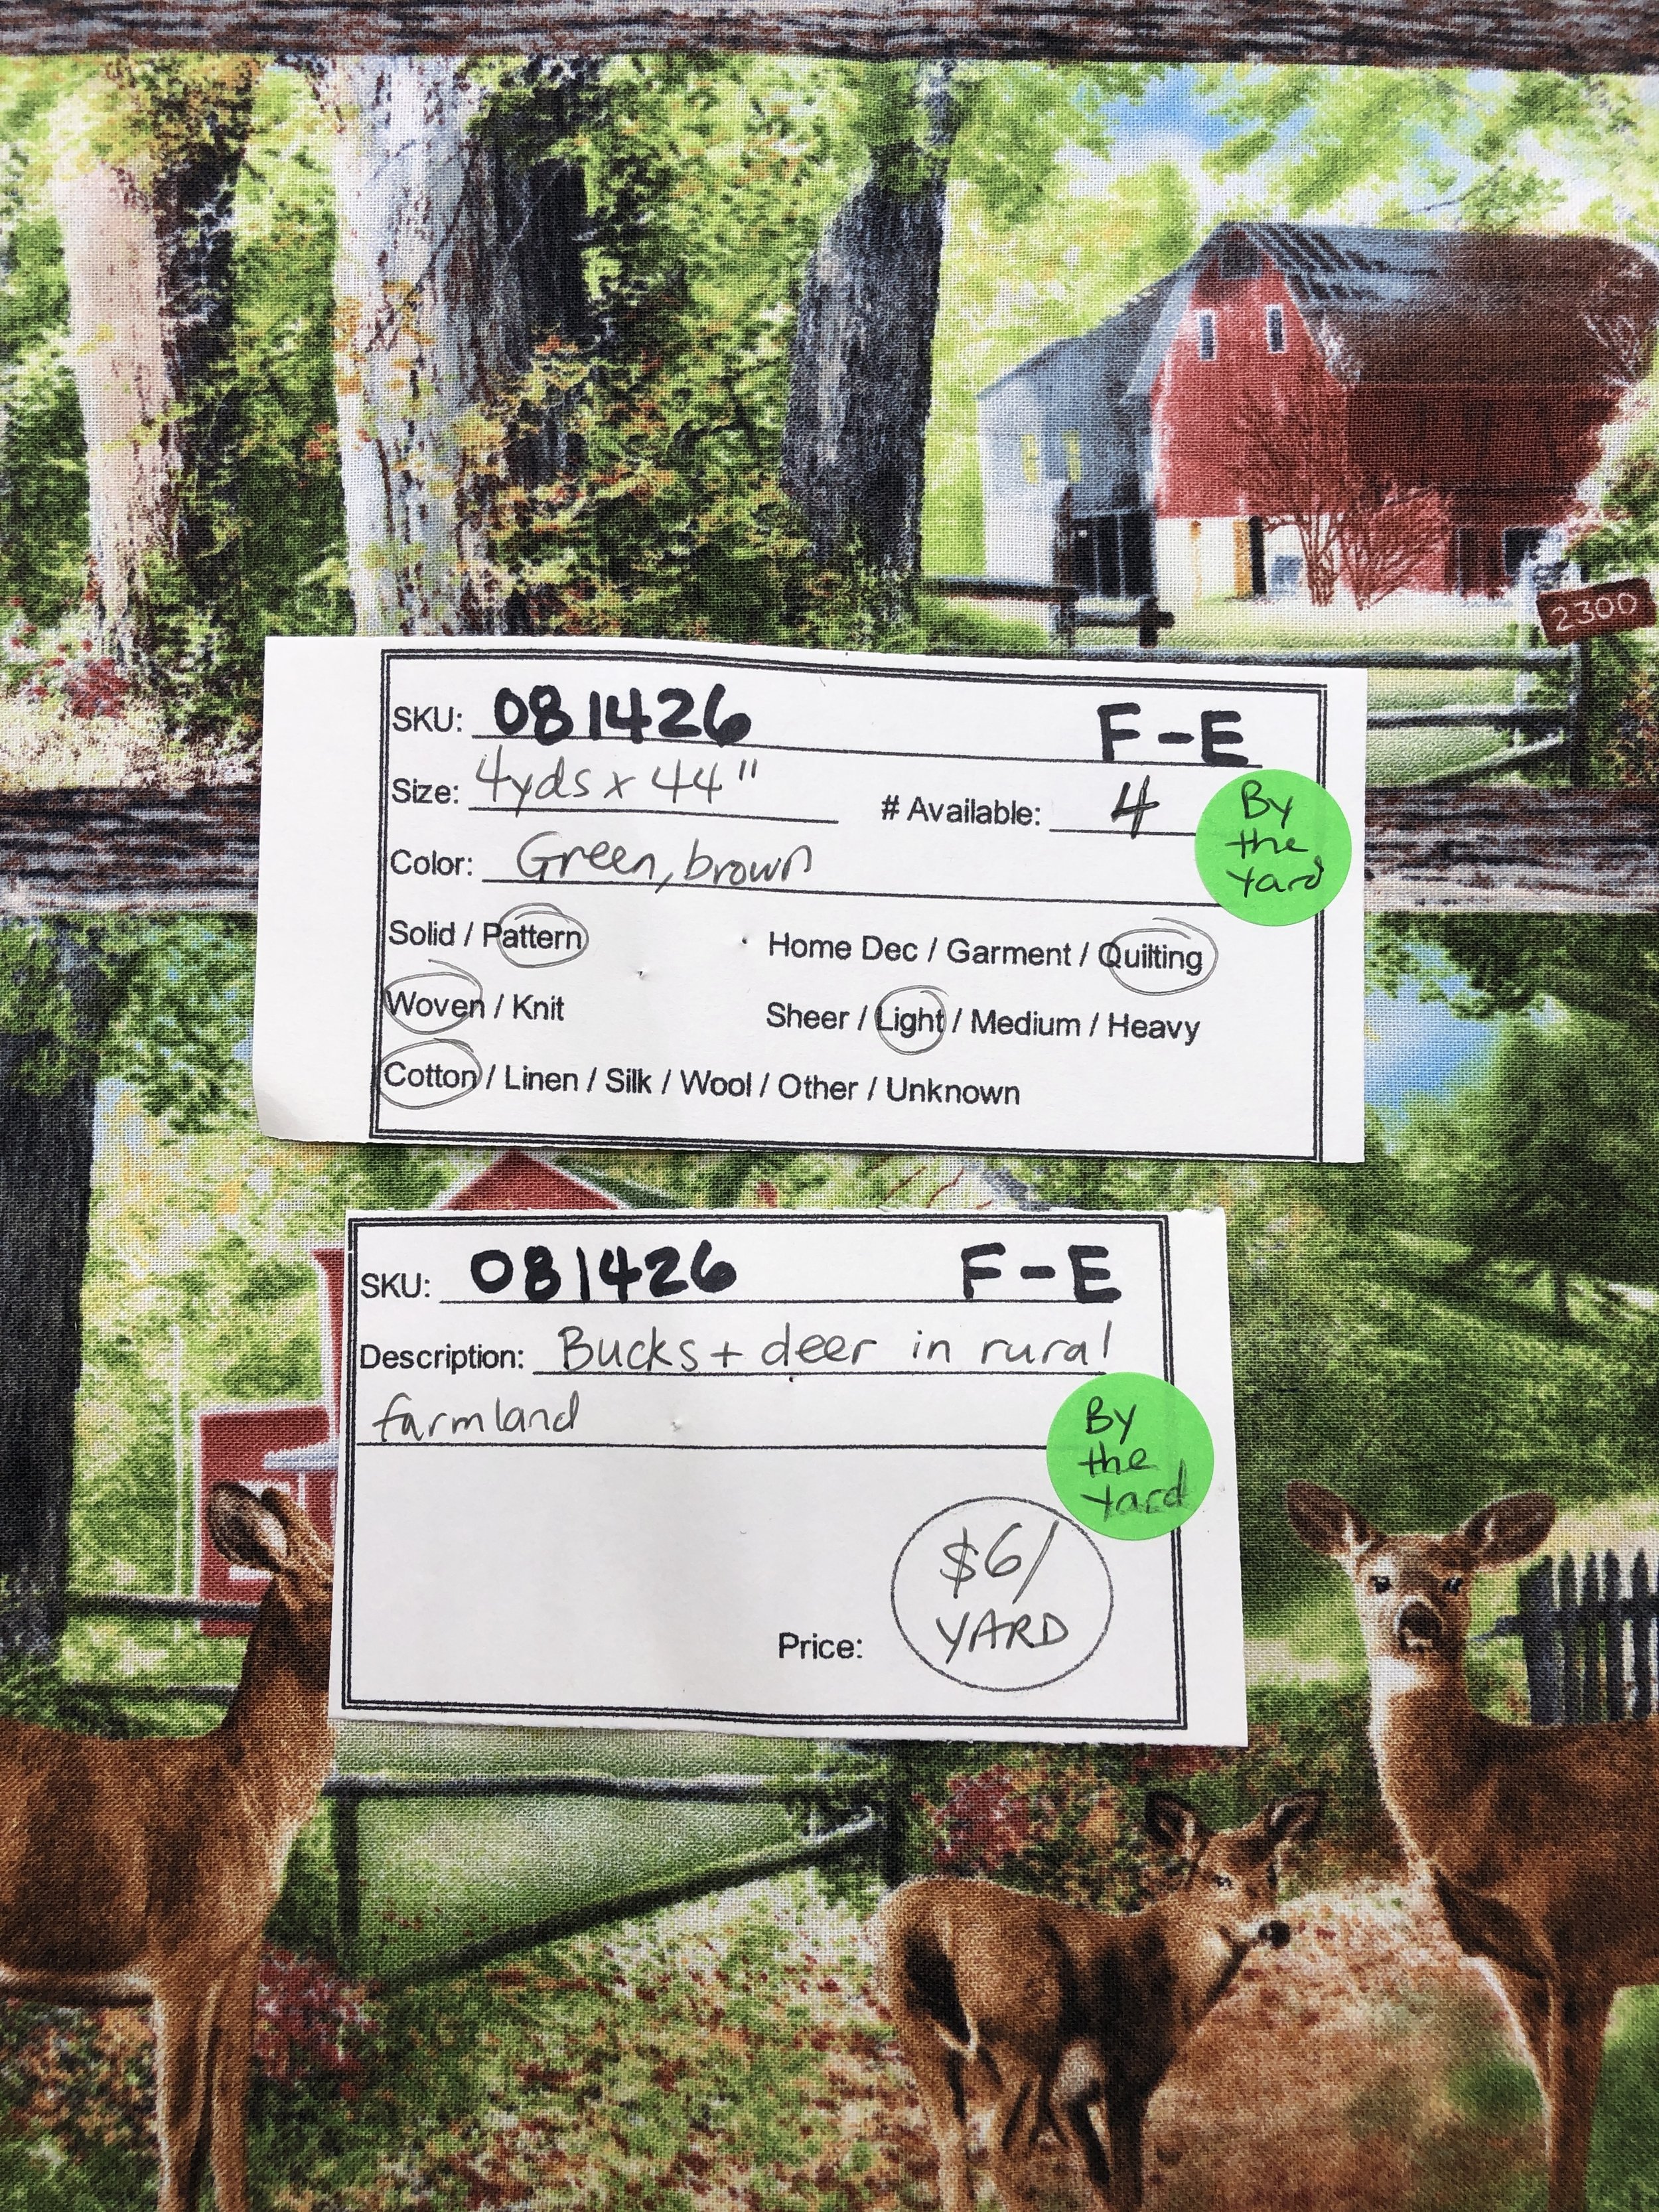 2300
SKU: 081426 F-E
Size: 4yds x 44" # Available: 4
By
the
Yard
Color: Green, brown
Solid / Pattern Home Dec / Garment / Quilting
Woven / Knit Sheer / Light / Medium / Heavy
Cotton / Linen / Silk / Wool / Other / Unknown
SKU: 081426 F-E
Description: Bucks + deer in rural
farmland
By
the
Yard
Price: $6/
YARD